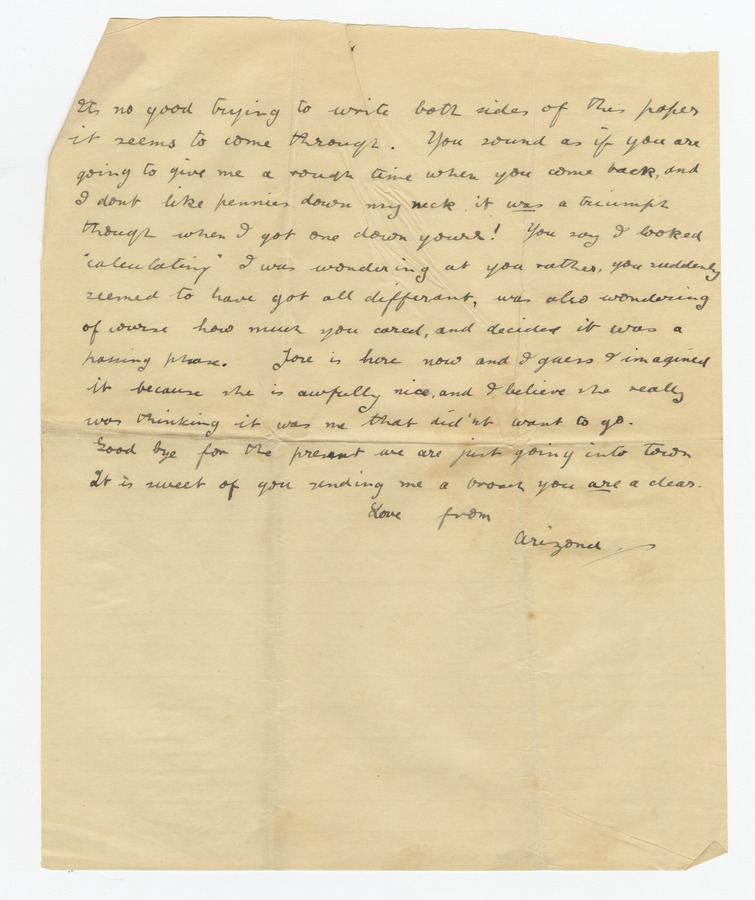 Its no good trying to write both sides of this paper
it seems to come through. You sound as if you are
going to give me a rough time when you come back, and
I dont like pennies down my neck it was a triumph
though when I got one down yours! You say I looked
"calculating" I was wondering at you rather, you suddenly
seemed to have got all different, was also wondering
of course how much you cared, and decided it was a
passing phase. is here now and I guess I imagined
it because she is awfully nice, and I believe she really
was thinking it was me that did'nt want to go.
Good bye for the present we are just going into town
It is sweet of you sending me a broach you are a dear.
Love from
Arizona